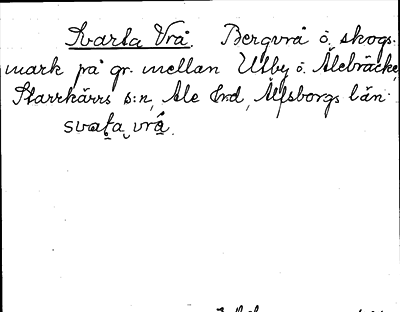 Svarta Vrå. Bergvrå o. skogs-
mark på gr. mellan Utby o. Ålebräcke,
Starrkärrs s:n, Ale hrd, Älfsborgs län.
svat̯a vrå.